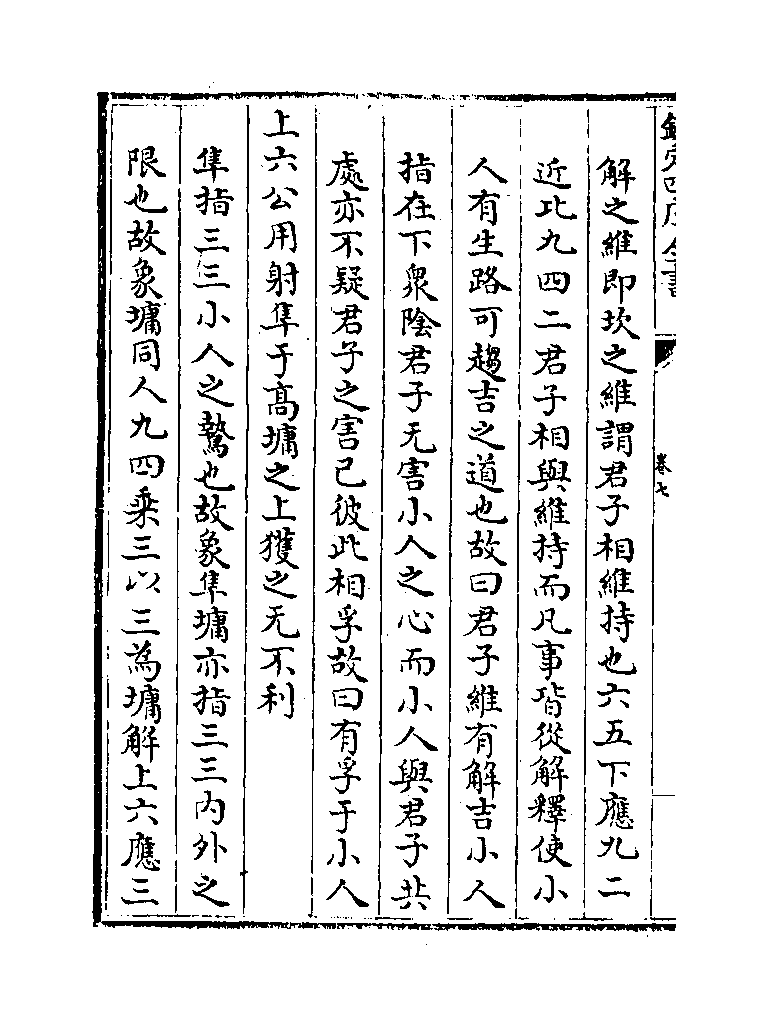 欽定四庫全書
卷七
解之維即坎之維謂君子相維持也六五下應九二
近比九四二君子相與維持而凡事皆從解釋使小
人有生路可趨吉之道也故曰君子維有解吉小人
指在下衆陰君子无害小人之心而小人與君子共
處亦不疑君子之害已彼此相孚故曰有孚于小人
上六公用射隼于髙墉之上獲之无不利
隼指三三小人之鷙也故象隼墉亦指三三内外之
限也故象墉同人九四乗三以三為墉解上六應三